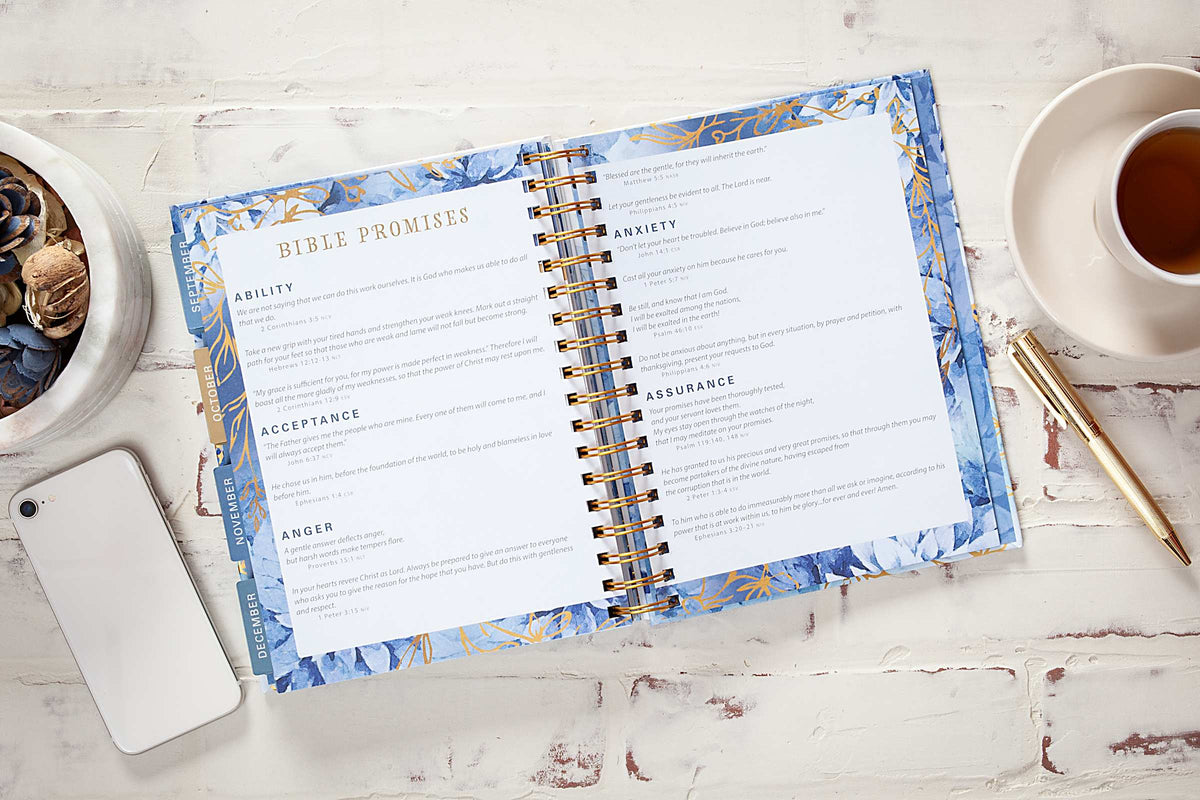 BIBLE PROMISES
ABILITY
We are not saying that we can do this work ourselves. It is God who makes us able to do all
that we do.
2 Corinthians 3:5 NCV
Take a new grip with your tired hands and strengthen your weak knees. Mark out a straight
path for your feet so that those who are weak and lame will not fall but become strong.
Hebrews 12:12-13 NLT
"My grace is sufficient for you, for my power is made perfect in weakness." Therefore I will
boast all the more gladly of my weaknesses, so that the power of Christ may rest upon me.
2 Corinthians 12:9 ESV
ACCEPTANCE
"The Father gives me the people who are mine. Every one of them will come to me, and I
will always accept them."
John 6:37 NCV
He chose us in him, before the foundation of the world, to be holy and blameless in love
before him.
Ephesians 1:4 CSB
ANGER
A gentle answer deflects anger,
but harsh words make tempers flare.
Proverbs 15:1 NLT
In your hearts revere Christ as Lord. Always be prepared to give an answer to everyone
who asks you to give the reason for the hope that you have. But do this with gentleness
and respect.
1 Peter 3:15 NIV
"Blessed are the gentle, for they will inherit the earth."
Matthew 5:5 NASB
Let your gentleness be evident to all. The Lord is near.
Philippians 4:5 NIV
ANXIETY
"Don't let your heart be troubled. Believe in God; believe also in me."
John 14:1 CSB
Cast all your anxiety on him because he cares for you.
1 Peter 5:7 NIV
Be still, and know that I am God.
I will be exalted among the nations,
I will be exalted in the earth!
Psalm 46:10 ESV
Do not be anxious about anything, but in every situation, by prayer and petition, with
thanksgiving, present your requests to God.
Philippians 4:6 NIV
ASSURANCE
Your promises have been thoroughly tested,
and your servant loves them.
My eyes stay open through the watches of the night,
that I may meditate on your promises.
Psalm 119:140, 148 NIV
He has granted to us his precious and very great promises, so that through them you may
become partakers of the divine nature, having escaped from
the corruption that is in the world.
2 Peter 1:3-4 ESV
To him who is able to do immeasurably more than all we ask or imagine, according to his
power that is at work within us, to him be glory...for ever and ever! Amen.
Ephesians 3:20-21 NIV
SEPTEMBER
OCTOBER
NOVEMBER
DECEMBER